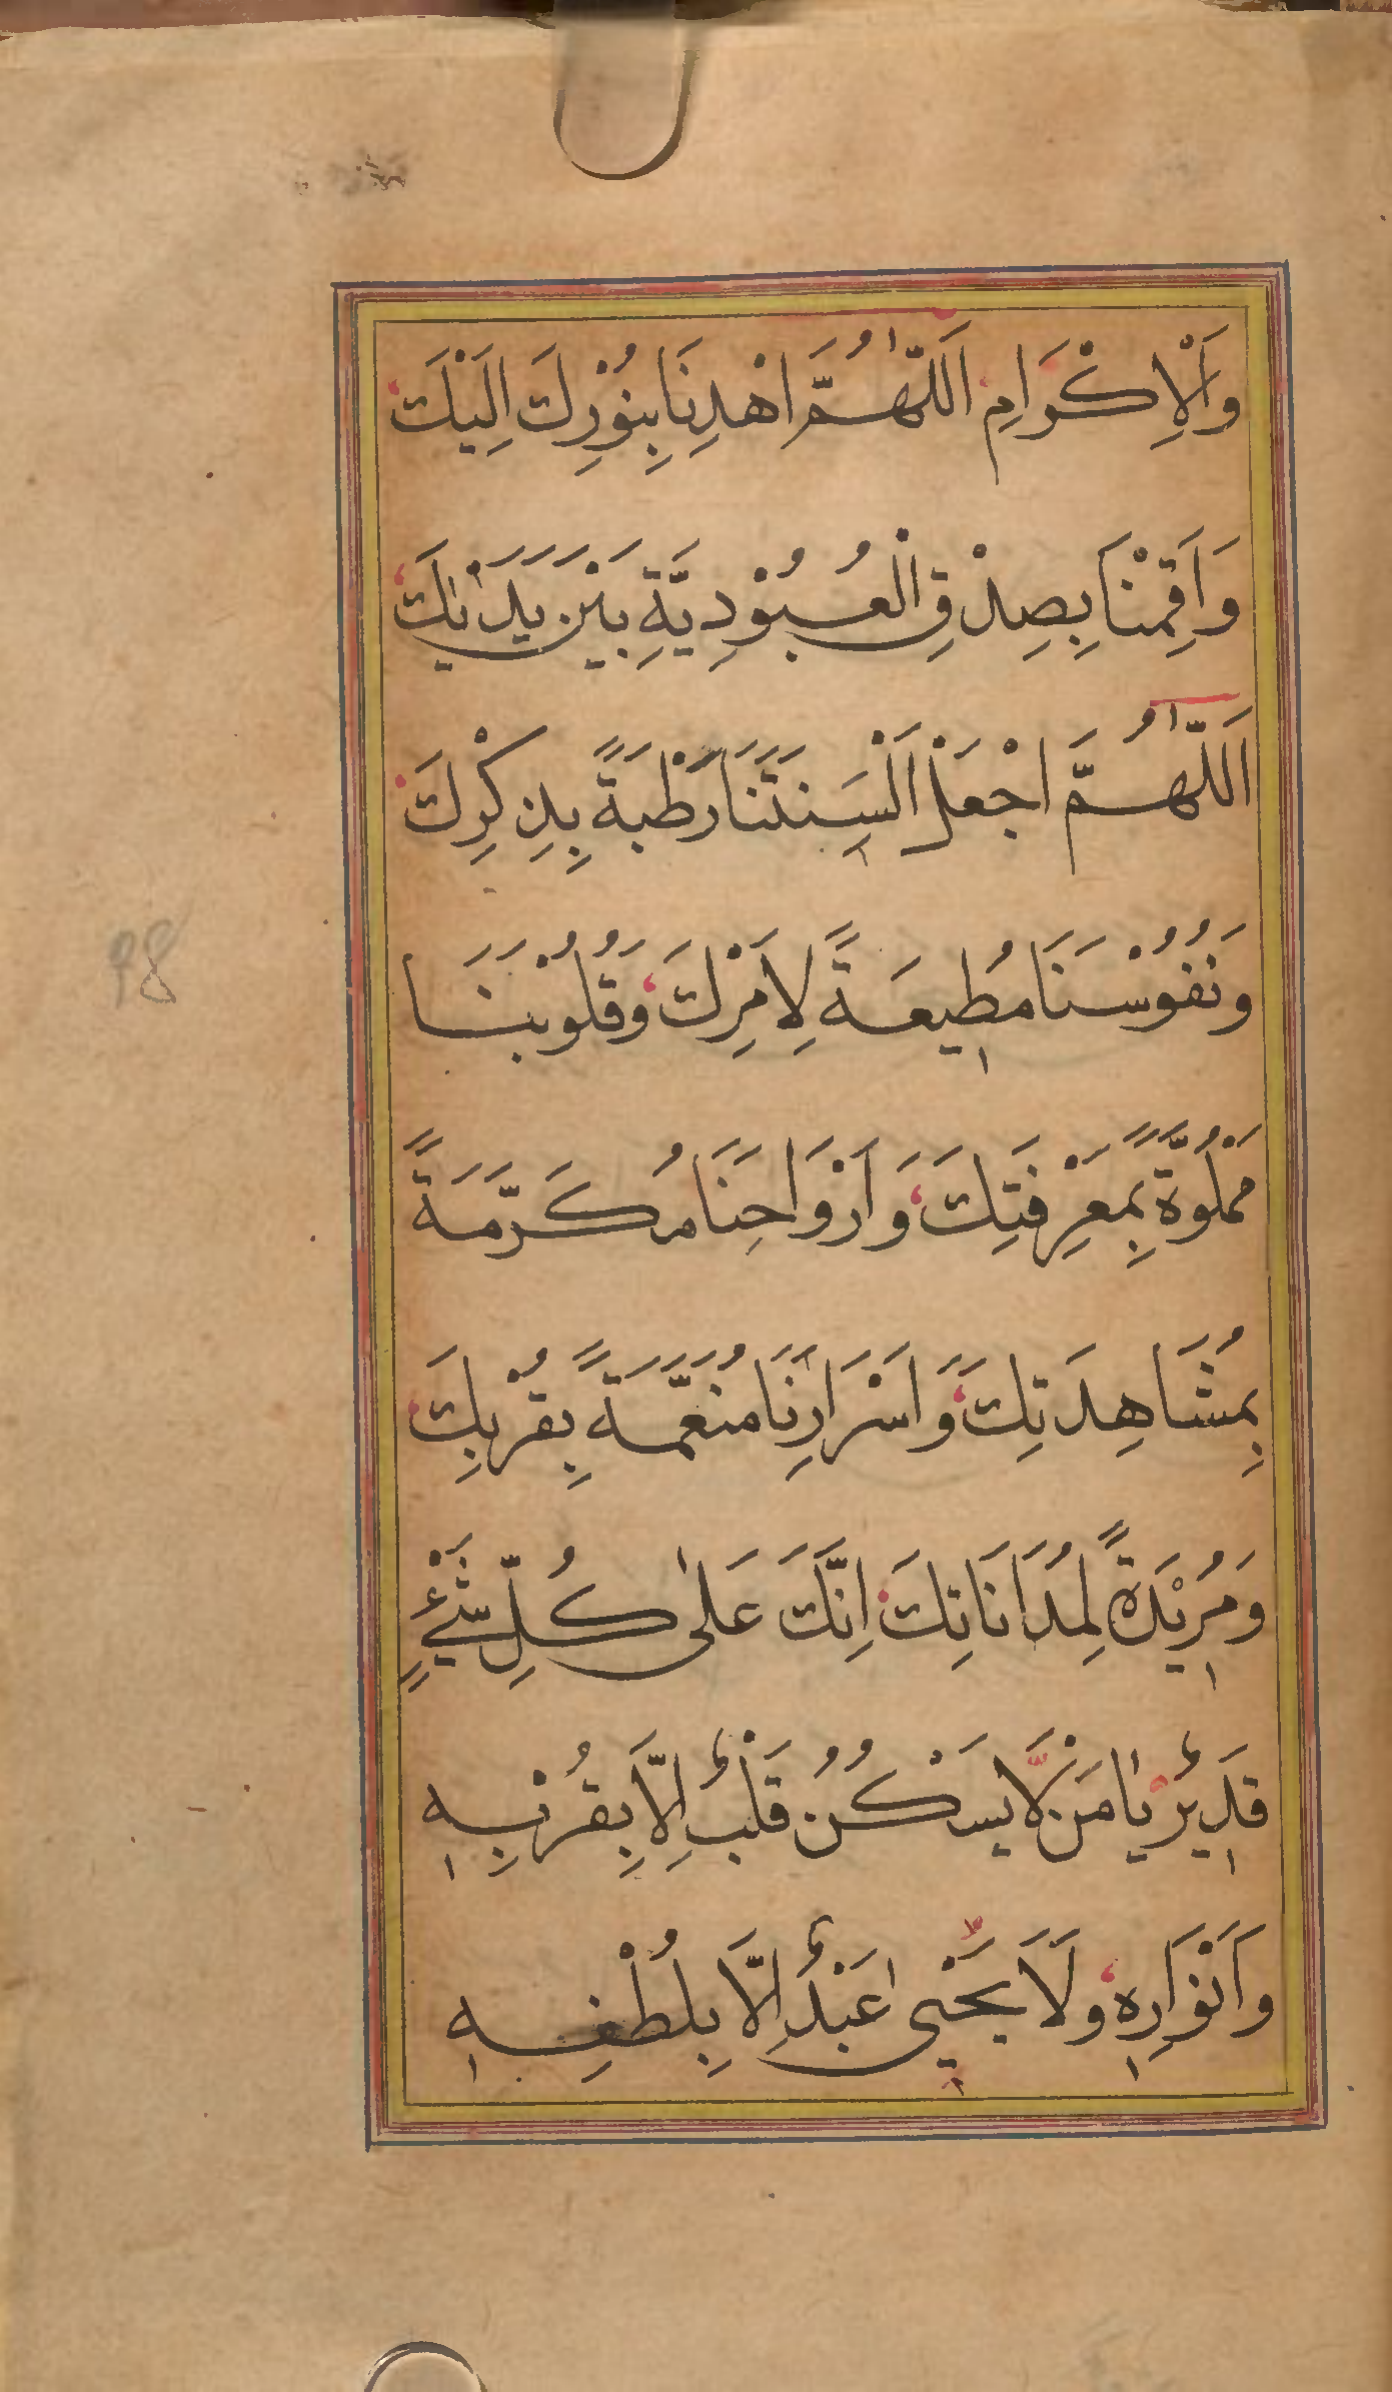 وَالْاِكْرَامِ اَللّٰهُمَّ اهْدِنَا بِنُوْرِكَ اِلَيْكَ
وَاَقِمْنَا بِصِدْقِ الْعُبُوْدِيَّةِ بَيْنَ يَدَيْكَ
اَللّٰهُمَّ اجْعَلْ اَلْسِنَتَنَا رَطْبَةً بِذِكْرِكَ
وَنُفُوْسَنَا مُطِيعَةً لِاَمْرِكَ وَقُلُوْبَنَا
مَمْلُوَّةً بِمَعْرِفَتِكَ وَاَرْوَاحَنَا مُكَرَّمَةً
بِمُشَاهَدَتِكَ وَاَسْرَارَنَا مُنَعَّمَةً بِقُرْبِكَ
وَمُرِيْدَةً لِمُدَانَاتِكَ اِنَّكَ عَلٰى كُلِّ شَيْءٍ
قَدِيْرٌ يَا مَنْ لَّا يَسْكُنُ قَلْبٌ اِلَّا بِقُرْبِهٖ
وَاَنْوَارِهٖ وَلَا يَحْيٰى عَبْدٌ اِلَّا بِلُطْفِهٖ
98